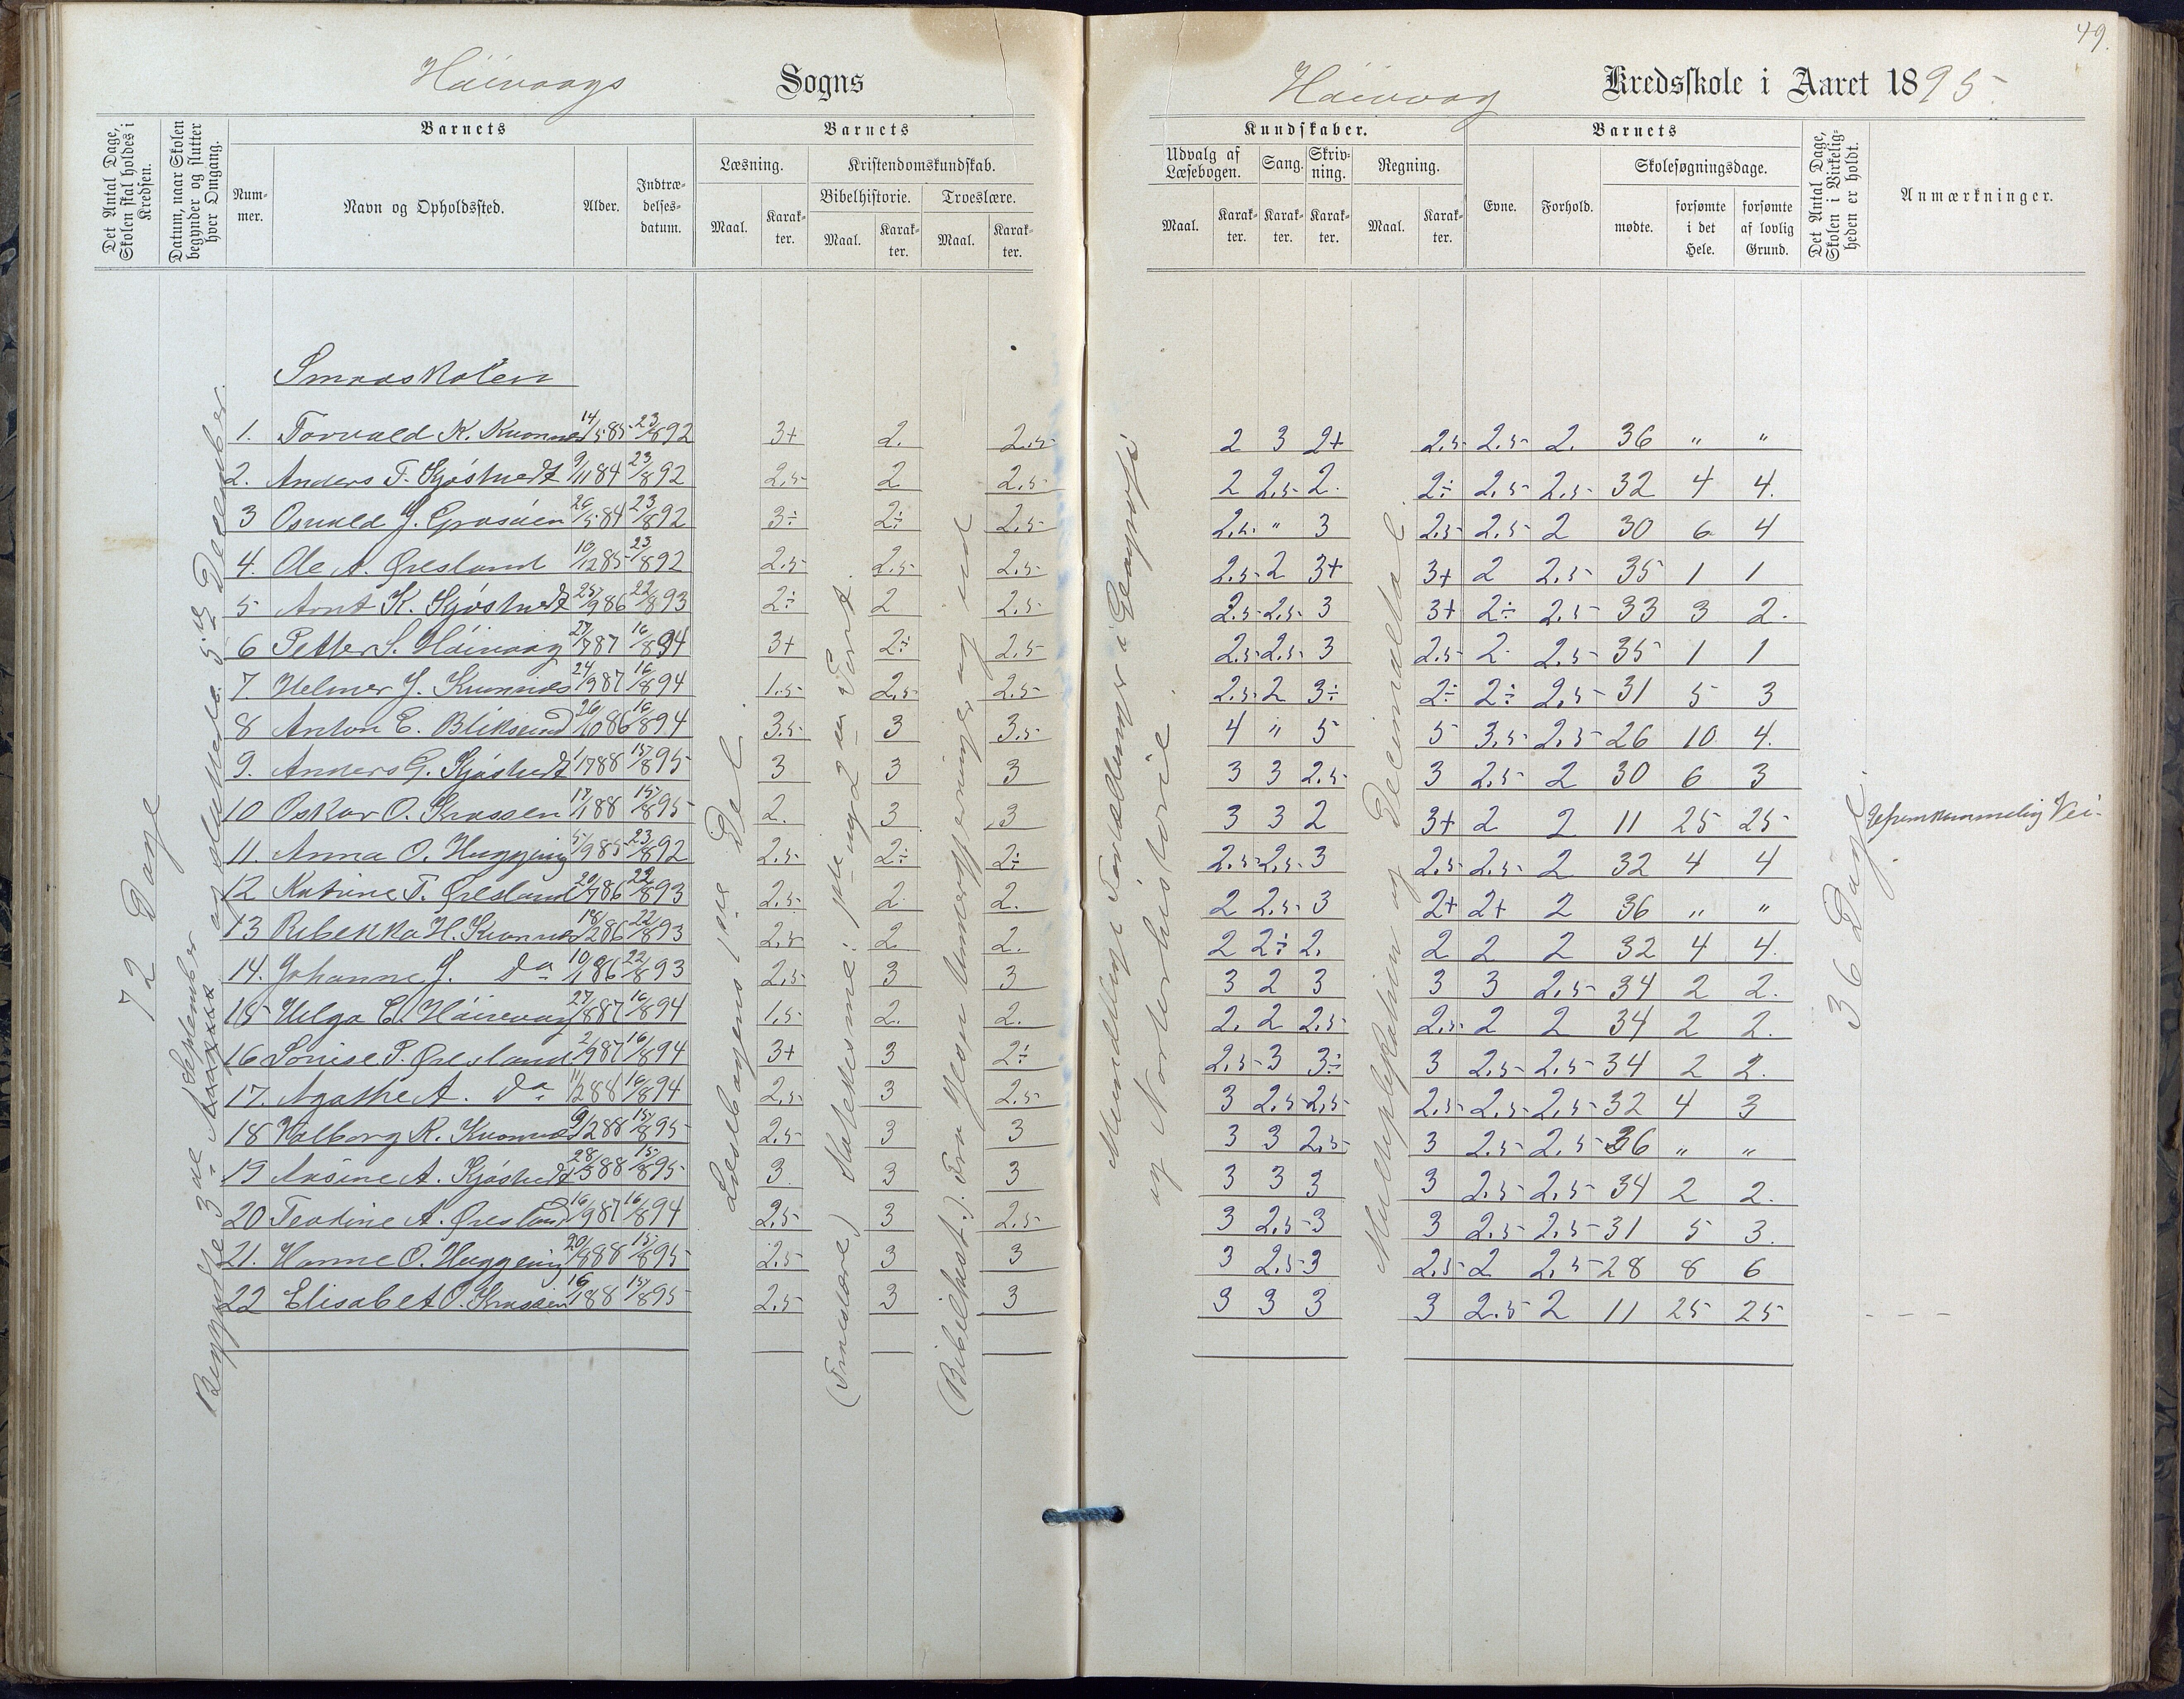 49.
Höivaags Sogns
Höivaag Kredsskole i Aaret 1895.
Det Antal Dage, Skolen skal holdes i Kredsen.
Datum, naar Skolen begynder og slutter hver Omgang.
Barnets
Nummer.
Navn og Opholdssted.
Alder.
Indtrædelsesdatum.
Barnets
Læsning.
Maal.
Karakter.
Kristendomskundskab.
Bibelhistorie.
Maal.
Karakter.
Troeslære.
Maal.
Karakter.
Kundskaber.
Udvalg af Læsebogen.
Maal.
Karakter.
Sang.
Karakter.
Skrivning.
Karakter.
Regning.
Maal.
Karakter.
Barnets
Evne.
Forhold.
Skolesøgningsdage.
mødte.
forsømte i det Hele.
forsømte af lovlig Grund.
Det Antal Dage, Skolen i Virkeligheden er holdt.
Anmærkninger.
72 Dage
Begyndte 3die September og sluttede 5te December.
Smaaskolen
1. Torvald K. Kvannes 14/5 85 23/8 92 3+ 2. 2.5 2 3 2+ 2.5 2.5 2. 36 " "
2. Anders T. Kjöstvedt 9/11 84 23/8 92 2.5 2 2.5 2 2.5 2. 2÷ 2.5 2.5 32 4 4.
3 Osvald J. Graaen 26/5 84 23/8 92 3÷ 2÷ 2.5 2.5 " 3 2.5 2.5 2 30 6 4
4. Ole A. Øresland 10/12 85 23/8 92 2.5 2.5 2.5 2.5 2 3+ 3+ 2 2.5 35 1 1
5 Arnt K. Kjöstvedt 25/9 86 22/8 93 2÷ 2 2.5 2.5 2.5 3 3+ 2÷ 2.5 33 3 2.
6 Petter S. Höivaag 27/7 87 16/8 94 3+ 2÷ 2.5 2.5 2.5 3 2.5 2 2.5 35 1 1
7. Helmer J. Kvannes 24/9 87 16/8 94 1.5 2.5 2.5 2.5 2 3÷ 2÷ 2÷ 2.5 31 5 3
8 Anton E. Bliksund 26/10 86 16/8 94 3.5 3 3.5 4 " 5 5 3.5 2.5 26 10 4.
9. Anders G. Kjöstvedt 1/7 88 15/8 95 3 3 3 3 3 2.5 3 2.5 2 30 6 3
10 Oskar O. 17/1 88 15/8 95 2. 3 3 3 3 2 3+ 2 2 11 25 25 Ufremkommelig Vei.
11. Anna O. Huggeing 5/9 85 23/8 92 2.5 2÷ 2÷ 2.5 2.5 3 2.5 2.5 2 32 4 4
12 Katrine T. Øresland 20/7 86 22/8 93 2.5 2 2. 2 2.5 3 2+ 2+ 2 36 " "
13 Rebekka H. Kvannes 18/2 86 22/8 93 2.5 2. 2. 2 2÷ 2. 2 2 2 32 4 4.
14. Johanne J. Do 10/1 86 22/8 93 2.5 3 3 3 2 3 3 3 2.5 34 2 2.
15 Helga E. Höivaag 27/8 87 16/8 94 1.5 2. 2. 2. 2 2.5 2.5 2 2 34 2 2.
16 Lovise P. Øresland 2/9 87 16/8 94 3+ 3 2÷ 2.5 3 3÷ 3 2.5 2.5 34 2 2.
17. Agathe A. Do 11/2 88 16/8 94 2.5 3 2.5 3 2.5 2.5 2.5 2.5 2.5 32 4 3
18 Valborg R. Kvannes 9/2 88 15/8 95 2.5 3 3 3 3 2.5 3 2.5 2.5 36 " "
19 Aasine A. Kjöstvedt 28/5 88 15/8 95 3 3 3 3 3 3 3 2.5 2.5 34 2 2.
20 Teodine A. Øresland 16/9 87 16/8 94 2.5 3 2.5 3 2.5 3 3 2.5 2.5 31 5 3.
21. Hanne O. Huggeing 20/8 88 15/8 95 2.5 3 3 3 2.5 3 2.5 2 2.5 28 8 6
22 Elisabet O. 16/1 88 15/8 95 2.5 3 3 3 3 3 3 2.5 2 11 25 25 - - -
Læsebogens 1ste Del.
(Troeslære) Katekisme: 1ste og 2den Part.
(Bibelhist.). Fra Jesu
Mundtlig: Fortællinger i Geografi
og Norterhistorie.
Multiplikation og Decimaltal.
36 Dage.